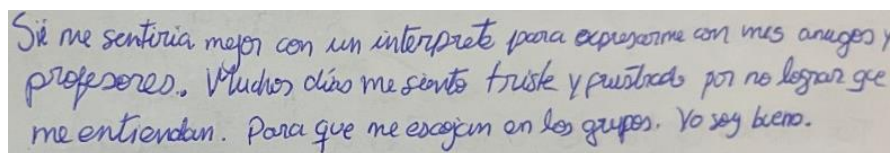 Sí me sentiria mejor con un interprete para expresarme con mis amigos y
profesores. Muchos días me siento triste y frustrado por no lograr que
me entiendan. Para que me escojan en los grupos. Yo soy bueno.